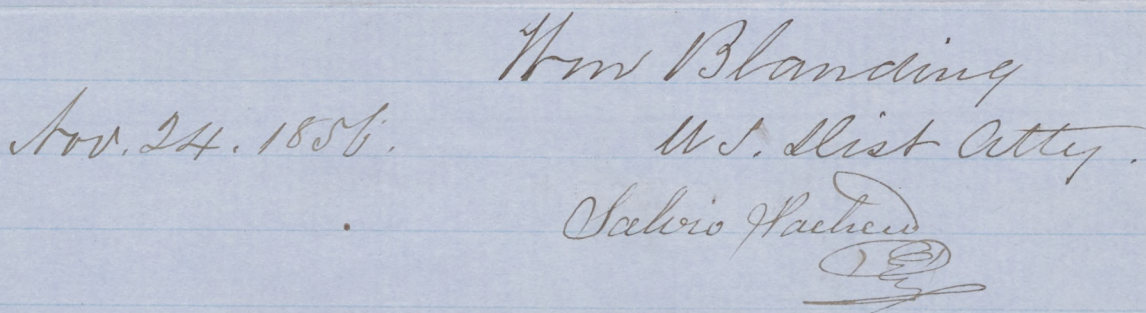 Wm Blanding
Nov. 24. 1856. U S. Dist Atty.
Salvio Pacheco